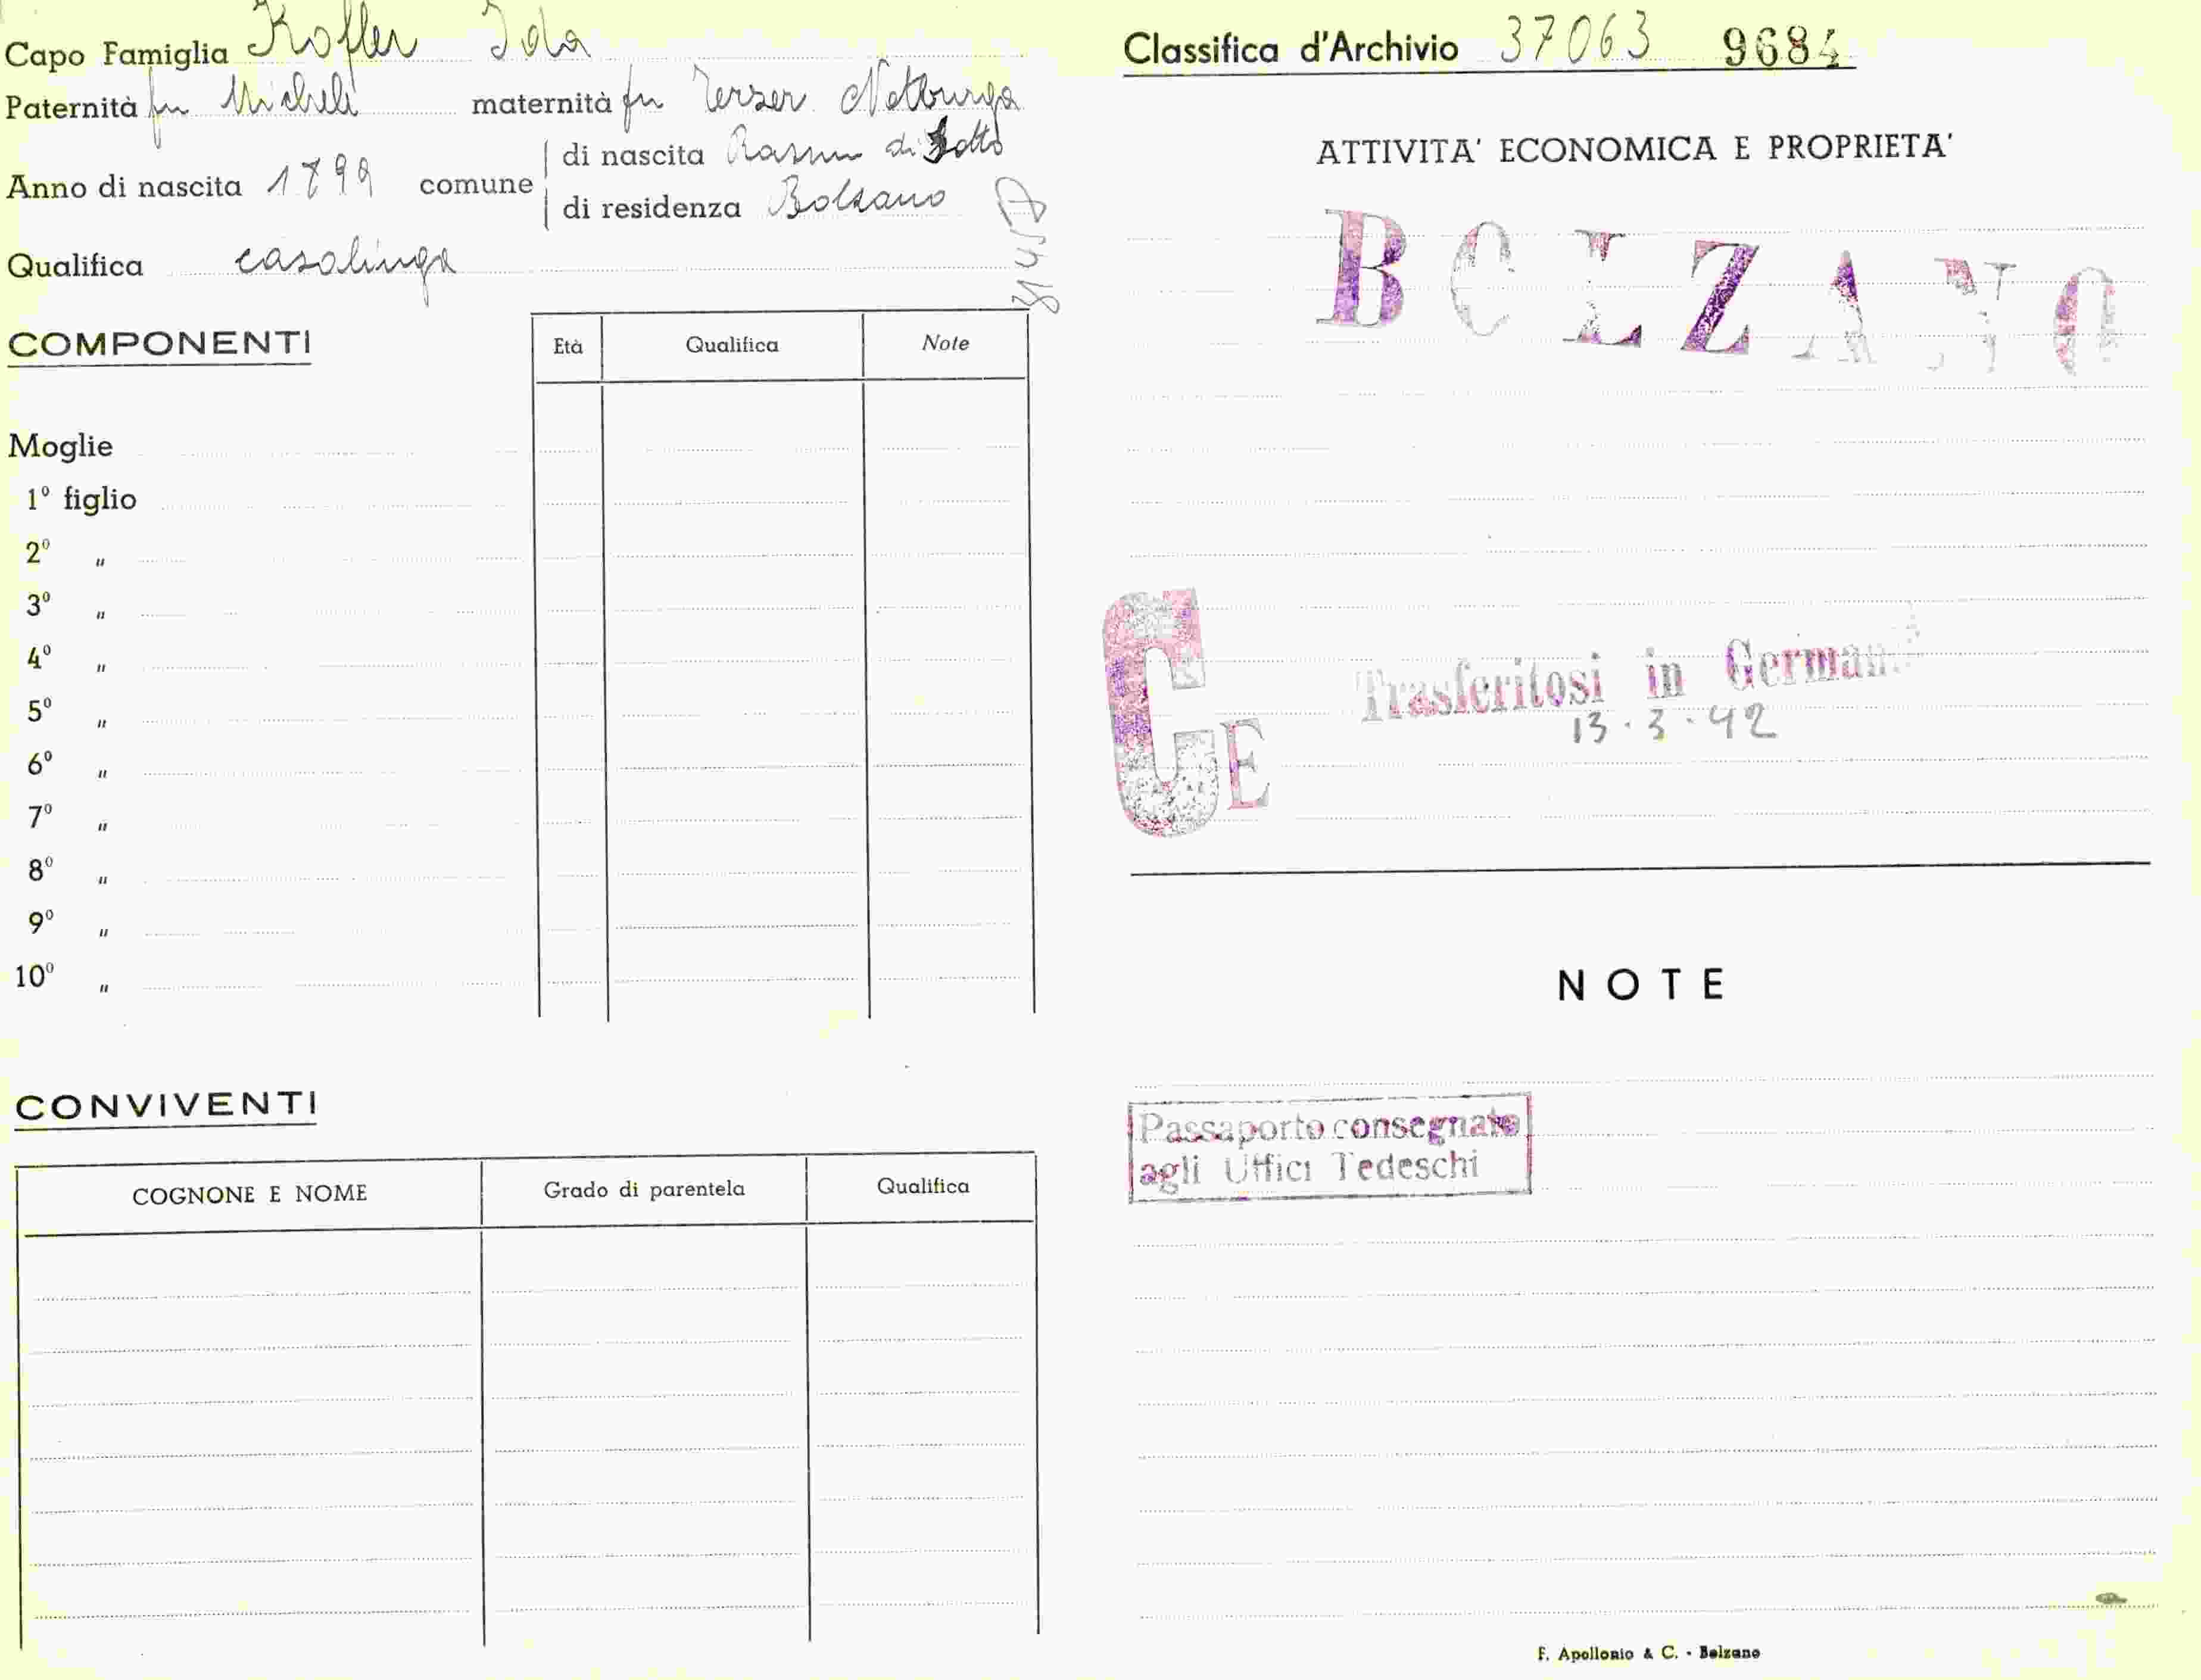 Capo Famiglia Kofler Ida
Paternità fu Michele maternità fu Terzer Notburga
Anno di nascita 1899 comune
di nascita Rasun di Sotto
di residenza Bolzano
Qualifica casalinga
COMPONENTI
Età Qualifica Note
Moglie
1º figlio
2º "
3º "
4º "
5º "
6º "
7º "
8º "
9º "
10º "
CONVIVENTI
COGNONE E NOME Grado di parentela Qualifica
Classifica d'Archivio 37063 9684
ATTIVITA' ECONOMICA E PROPRIETA'
BOLZANO
CE
Trasferitosi in Germania
13.3.42
NOTE
Passaporto consegnato
agli Uffici Tedeschi
F. Apollonio & C. - Bolzano